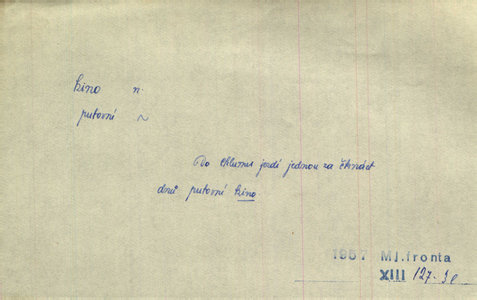 kino n.
putovní ~
Do Chlumu jezdí jednou za čtrnáct
dnů putovní kino
1957 Ml. fronta
XIII 127-3c